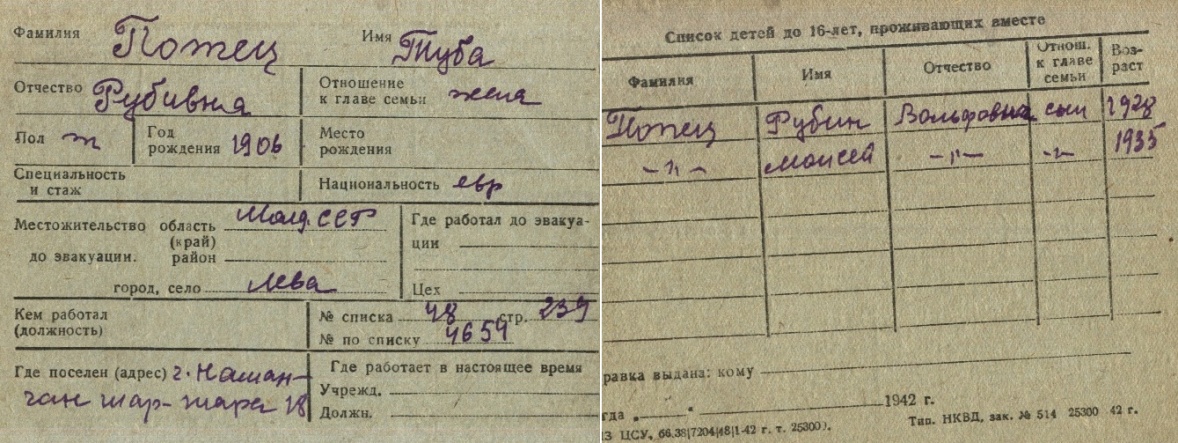 Фамилия Потец Имя Туба
Отчество Рубивна Отношение к главе семьи жена
Пол ж Год рождения 1906 Место рождения
Специальность и стаж Национальность евр
Местожительство область Молд. ССР Где работал до эвакуа-
(край) ции
до эвакуации. район
город, село Лева Цех
Кем работал № списка 48 стр. 239
(должность) № по списку 4659
Где поселен (адрес) г. Наман- Где работает в настоящее время
ган Учрежд.
Должн.
Список детей до 16-лет, проживающих вместе
Фамилия Имя Отчество Отнош. к главе семьи Воз-раст
Потец Рубин Вольфовна сын 1928
-"- Моисей -"- -"- 1935
равка выдана: кому
гда „ “ 1942 г.
ЦСУ, 66.38|7204|48|1-42 г. т. 25300). Тип. НКВД, зак. № 514 25300 42 г.